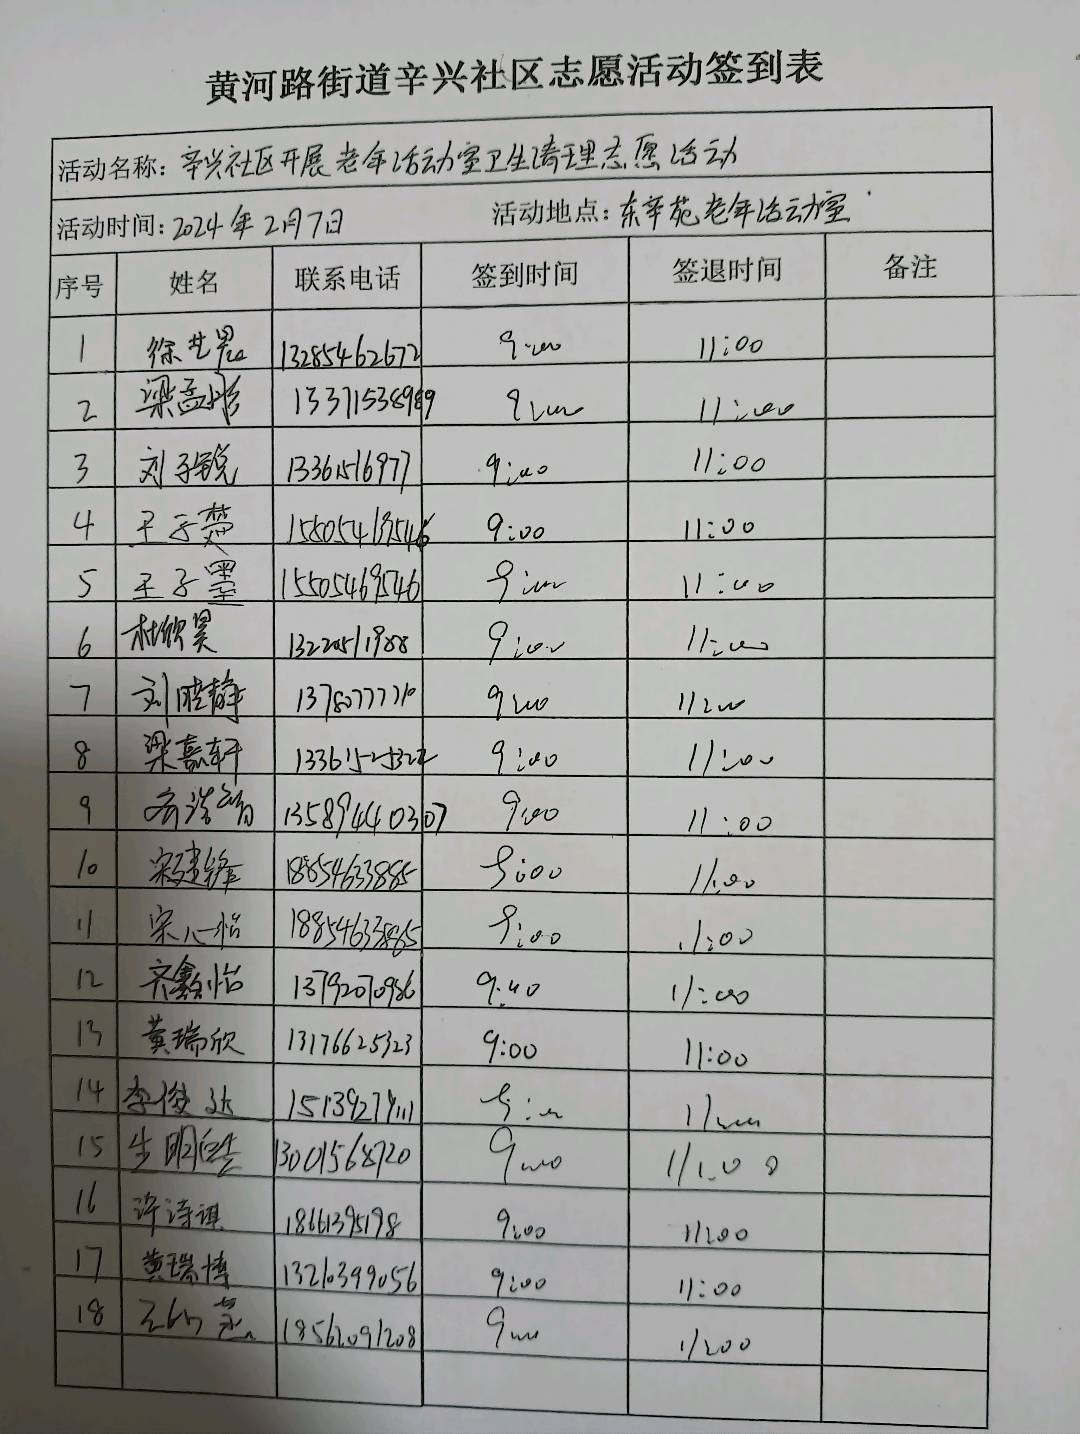 黄河路街道辛兴社区志愿活动签到表
活动名称: 辛兴社区开展老年活动室卫生清理志愿活动
活动时间: 2024年2月7日 活动地点: 东辛苑老年活动室
序号 姓名 联系电话 签到时间 签退时间 备注
1 徐艺 13285462672 9:00 11:00
2 梁孟彤 9:00 11:00
3 刘子锐 13361516977 9:00 11:00
4 王子楚 9:00 11:00
5 王子墨 15505469546 9:00 11:00
6 杜欣昊 13220511988 9:00 11:00
7 刘晓静 9:00 11:00
8 梁嘉轩 9:00 11:00
9 13589440307 9:00 11:00
10 宋建锋 18854633885 9:00 11:00
11 宋心怡 9:00 11:00
12 齐鑫怡 13792070986 9:00 11:00
13 黄瑞欣 13176625323 9:00 11:00
14 李俊 9:00 11:00
15 生明 13001568720 9:00 11:00
16 许诗琪 18661395198 9:00 11:00
17 黄瑞博 13210399056 9:00 11:00
18 18562091208 9:00 11:00